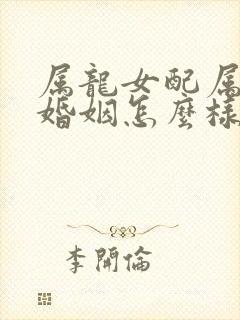 属龍女配属
婚姻怎麼樣
李開倫